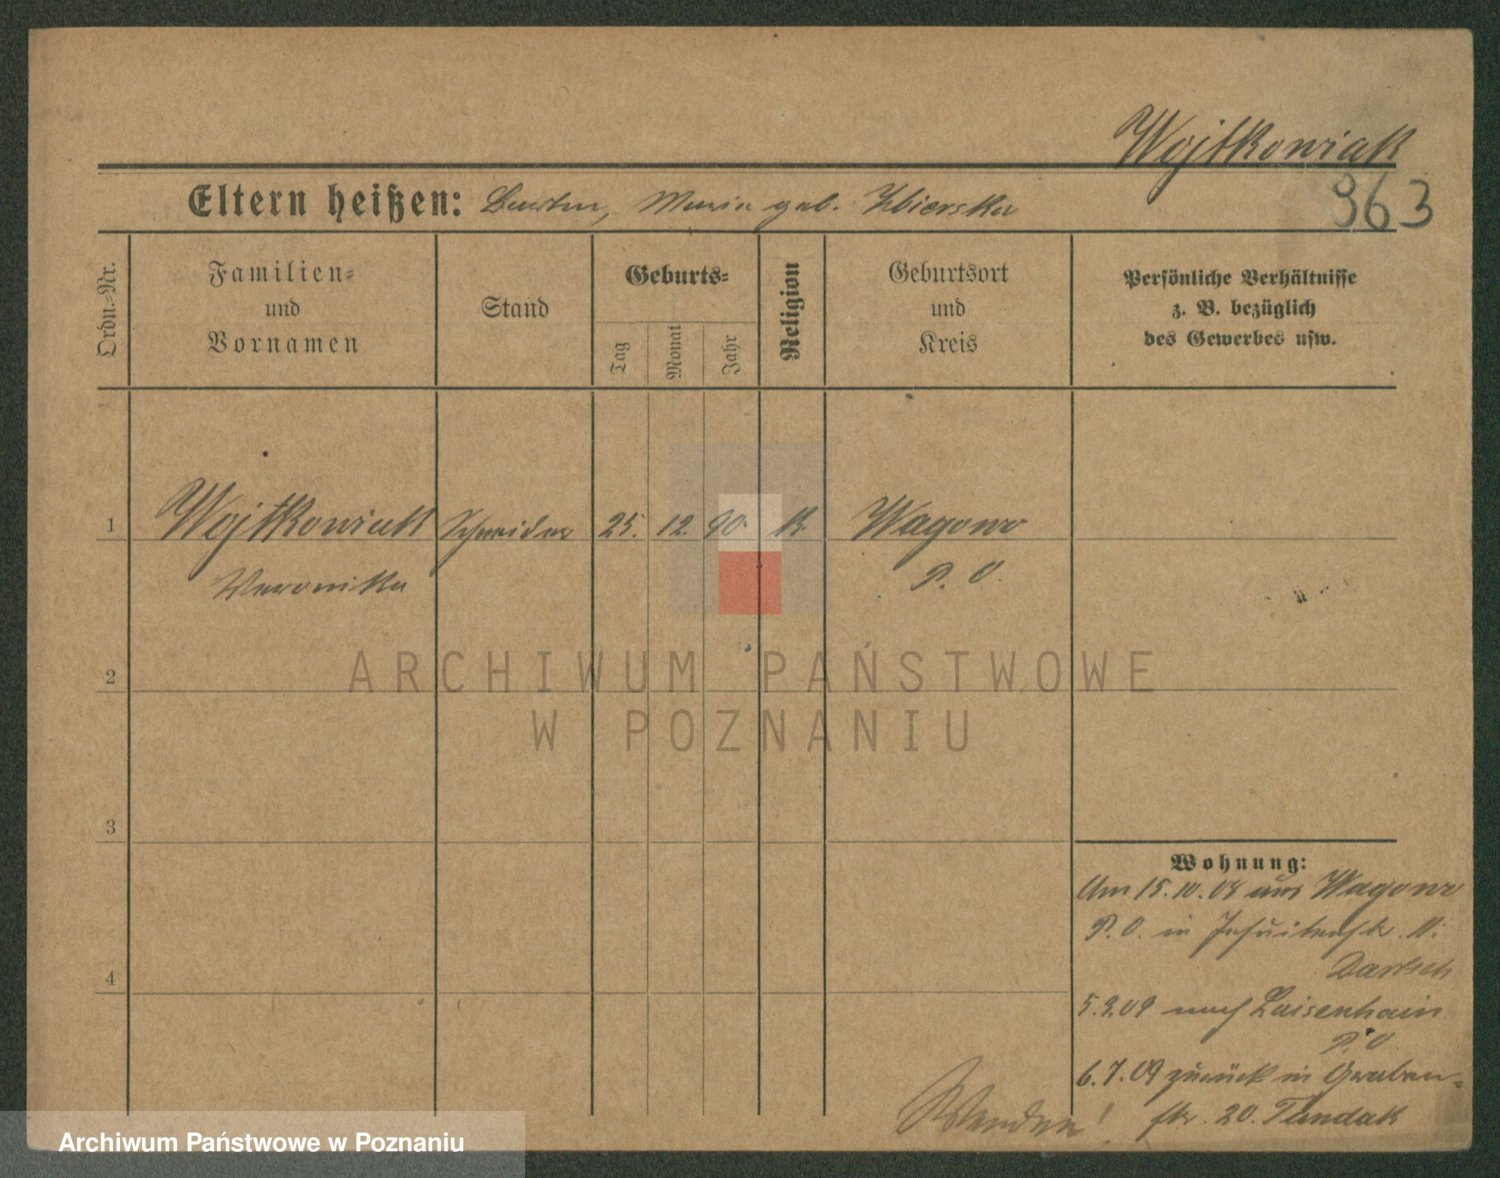 Wojtkowiak
963
Eltern heißen: Maria geb. Zbierska
Ordn.=Nr.
Familien=
und
Vornamen
Stand
Geburts=
Tag
Monat
Jahr
Religion
Geburtsort
und
Kreis
Persönliche Verhältnisse
z. B. bezüglich
des Gewerbes usw.
1 Wojtkowiak Schneider 25. 12. 90. k. Wagowo
Veronika P. O.
ARCHIWUM PAŃSTWOWE
W POZNANIU
2
3
4
Wohnung:
Am 15.10.08 aus Wagowo
P. O. in Jesuitenstr. 11:
Bartsch
5.3.09 nach Luisenhain
P. O.
6.7.09 zurück in Graben=
str. 20. Tundak
Wenden!
Archiwum Państwowe w Poznaniu